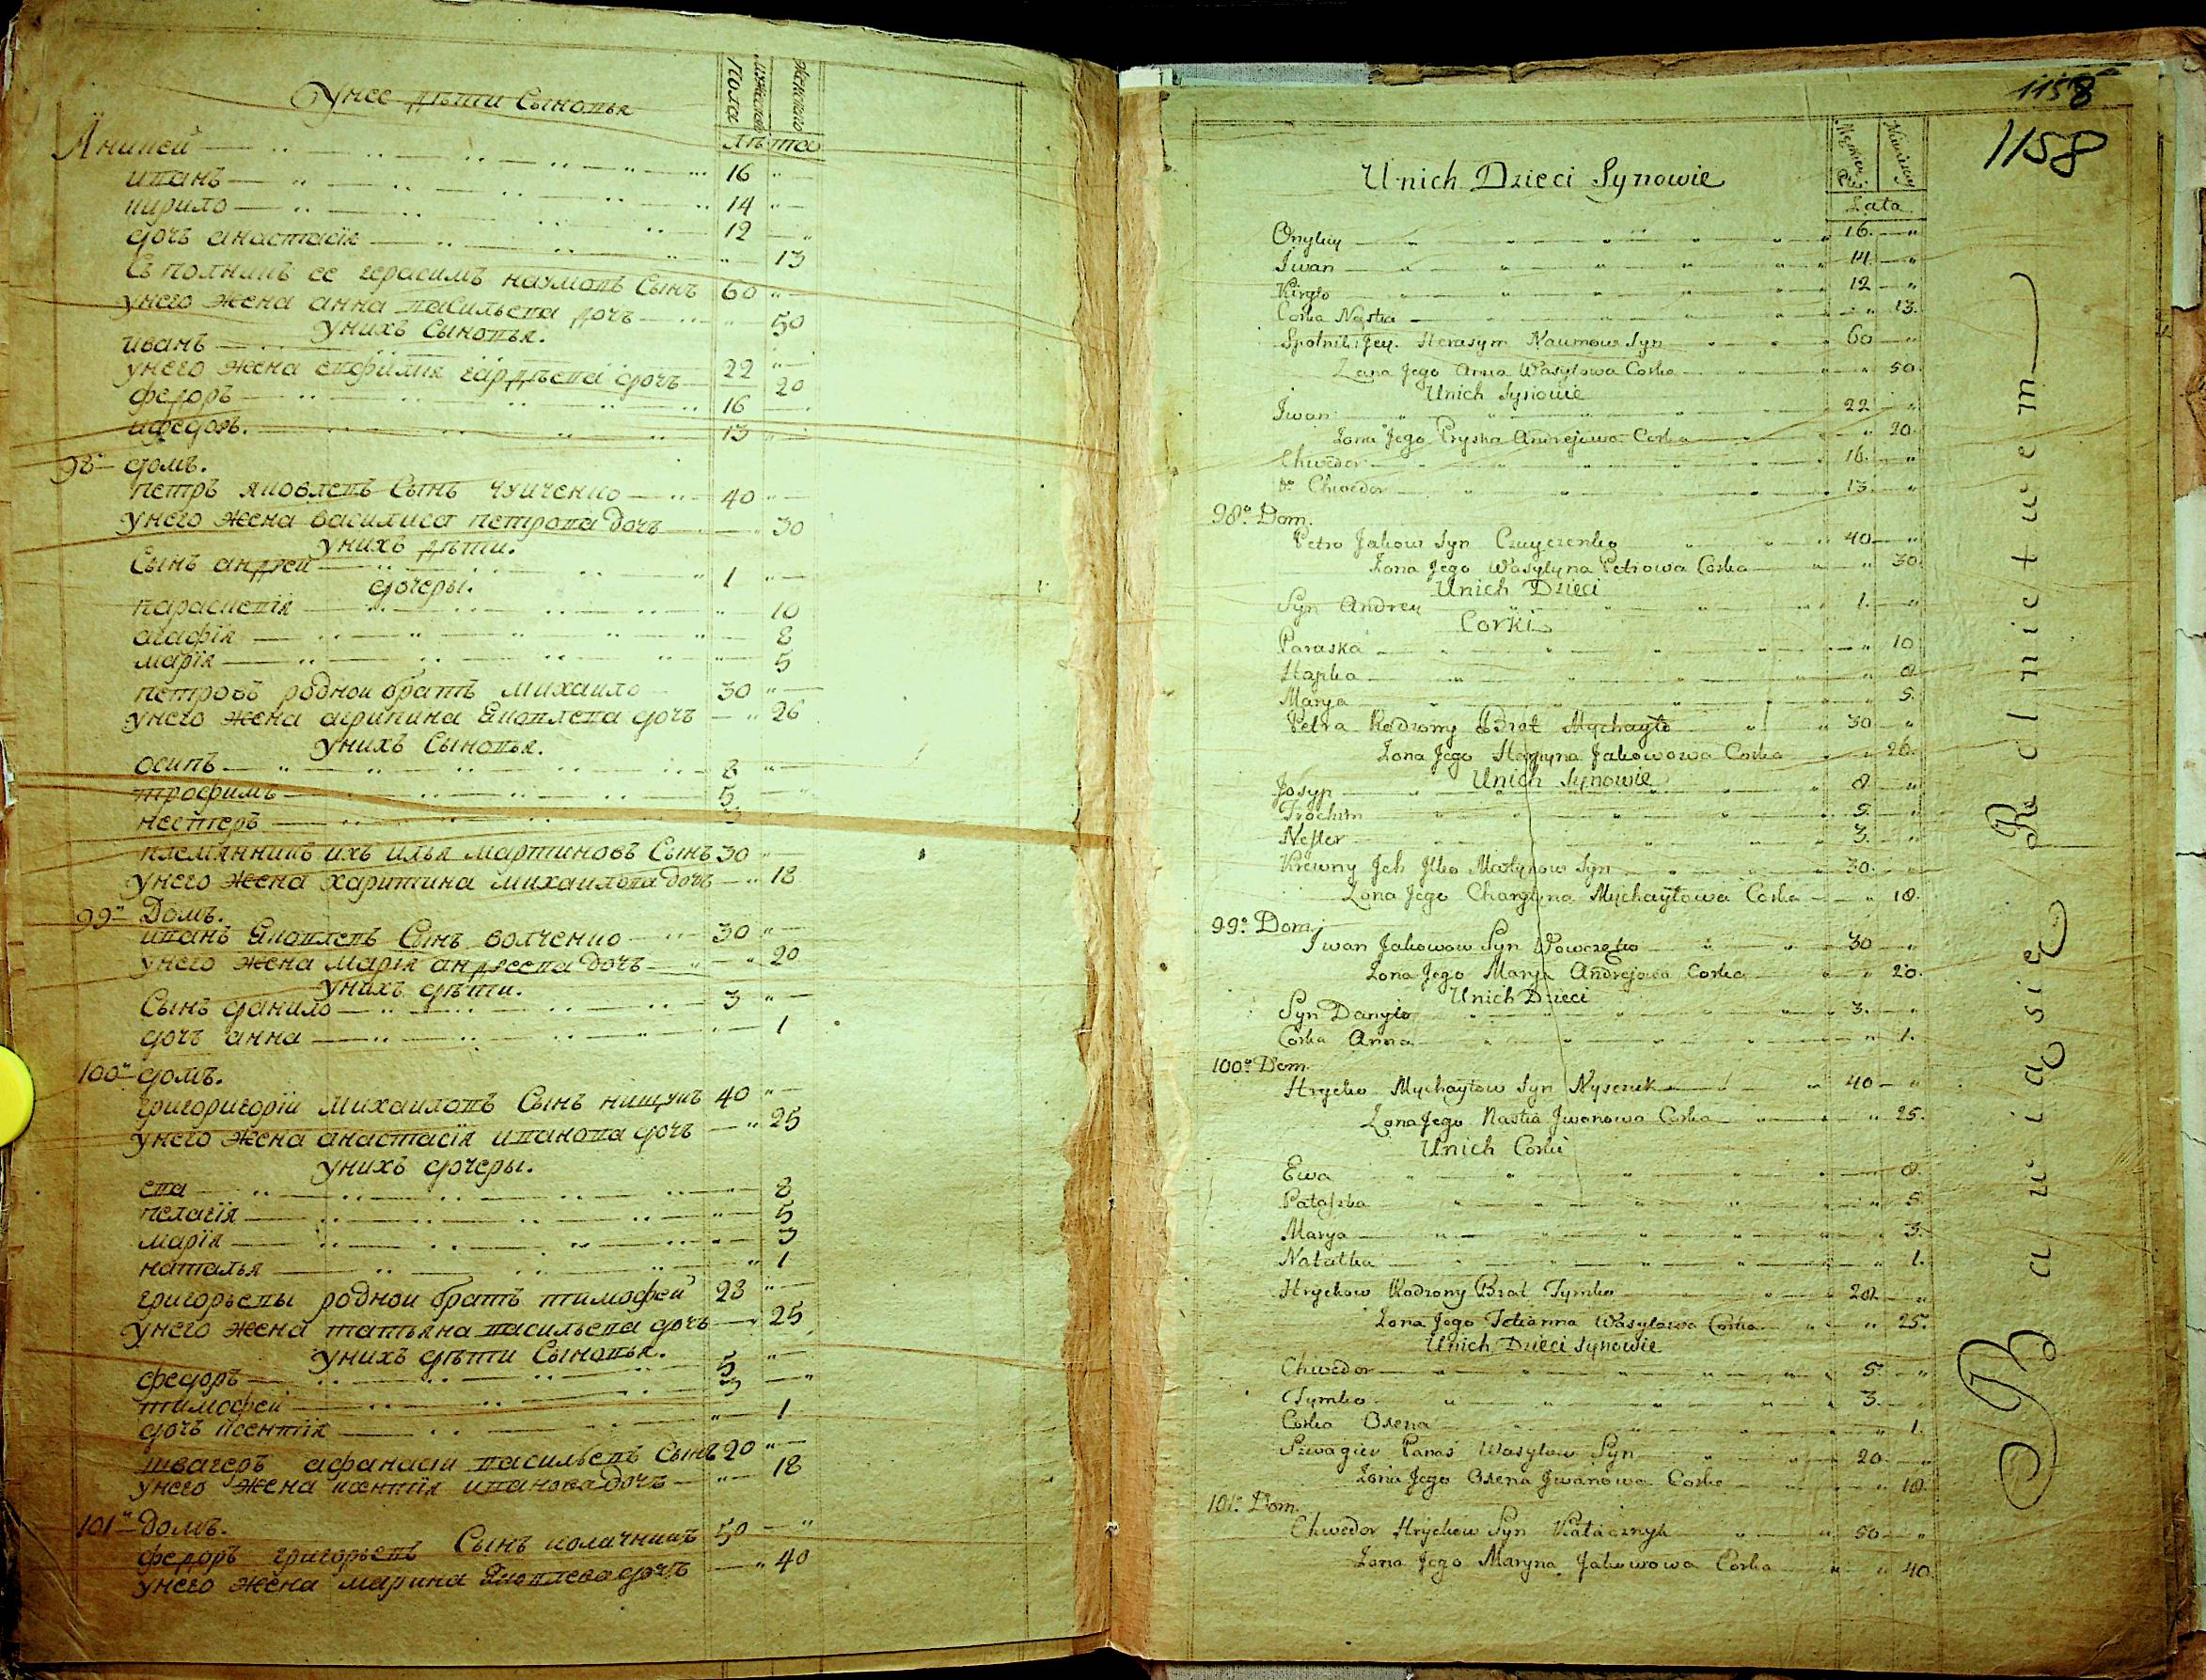 Унее дѣти Сыновья
Пола
мужеска
женского
лѣта
Аницей
иванъ 16
кирило 14
дочъ анастасія 12
13
Съполникъ ее герасимъ наумовъ Сынъ 60
унего жена анна васильева дочъ 50
унихъ Сыновья.
иванъ
унего жена евфимія гардѣева дочъ 22
20
федоръ 16
ифедоръ. 13
98й домъ.
петръ яковлевъ Сынъ чуиченко 40
унего жена василиса петрова дочъ 30
унихъ дѣти.
Сынъ андрей 1
дочеры.
параскевія 10
агафія 8
марія 5
петровъ роднои братъ михаило 30
унего жена агрипина яковлева дочъ 26
унихъ Сыновья.
осипъ 8
трофимъ 5
нестеръ 3
племянникъ ихъ илья мартиновъ Сынъ 30
унего жена харитина михаилова дочъ 18
99й Домъ.
иванъ яковлевъ Сынъ волченко 30
унего жена марія андреева дочъ 20
унихъ дѣти.
Сынъ данило 3
дочъ анна 1
100й домъ.
григоригоріи михаиловъ Сынъ нищукъ 40
унего жена анастасія иванова дочъ 25
унихъ дочеры.
ева 8
пелагія 5
марія 3
наталья 1
григорьевы роднои братъ тимофей 28
унего жена татьяна васильева дочъ 25
унихъ дѣти Сыновья.
федоръ 5
тимофей 3
дочъ ксентія 1
швагеръ афанасіи васильевъ Сынъ 20
унего жена ксентія иванова дочъ 18
101й домъ.
федоръ григорьевъ Сынъ колачникъ 50
унего жена марина яковлева дочъ 40
1158
1158
Unich Dzieci Synowie
Lata
Onyłkiy 16.
Jwan 14
Kiryło 12
Corka Nastia 13.
Spolnik Jey. Herasym Naumow Syn 60
Zona Jego Anna Wasylowa Corka 50.
Unich Synowie
Jwan 22
Zona Jego Pryska Andrejowa Corka 20.
Chwedor 16.
do Chwedor 13.
98o Dom.
Petro Jakow Syn Czuyczenko 40
Zona Jego Wasylyna Petrowa Corka 30.
Unich Dzieci
Syn Andrey 1.
Corki
Paraska 10.
Hapka 8
Marya 5.
Petra Rodzony Brat Mychayło 30
Zona Jego Hapyna Jakowowa Corka 26.
Unich Synowie
Josyp 8
Trochim 5.
Nester 3.
Krewny Jch Jlko Martynow Syn 30.
Zona Jego Charytyna Mychayłowa Corka 18.
99o Dom.
Jwan Jakowow Syn Wowczenko 30
Zona Jego Marya Andrejowa Corka 20.
Unich Dzieci
Syn Danyło 3.
Corka Anna 1.
100o Dom.
Hryćko Mychayłow Syn Nyszczuk 40
Zona Jego Nastia Jwanowa Corka 25.
Unich Corki
Ewa 8.
Pałaszka 5
Marya 3.
Natałka 1.
Hryckow Rodzony Brat Tymko 28
Zona Jego Tetianna Wasylowa Corka 25.
Unich Dzieci Synowie
Chwedor 5.
Tymko 3.
Corka Oxena 1.
Szwagier Panas Wasylow Syn 20.
Zona Jego Oxena Jwanowa Corka 18.
101o Dom.
Chwedor Hryckow Syn Kałacznyk 50
Zona Jego Maryna Jakowowa Corka 40.
Bawiąsię Rolnictwem